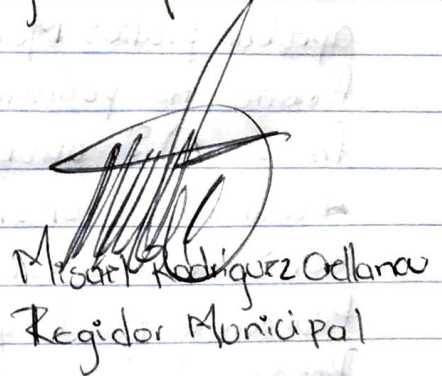 Miguel Rodriguez Oellana
Regidor Municipal